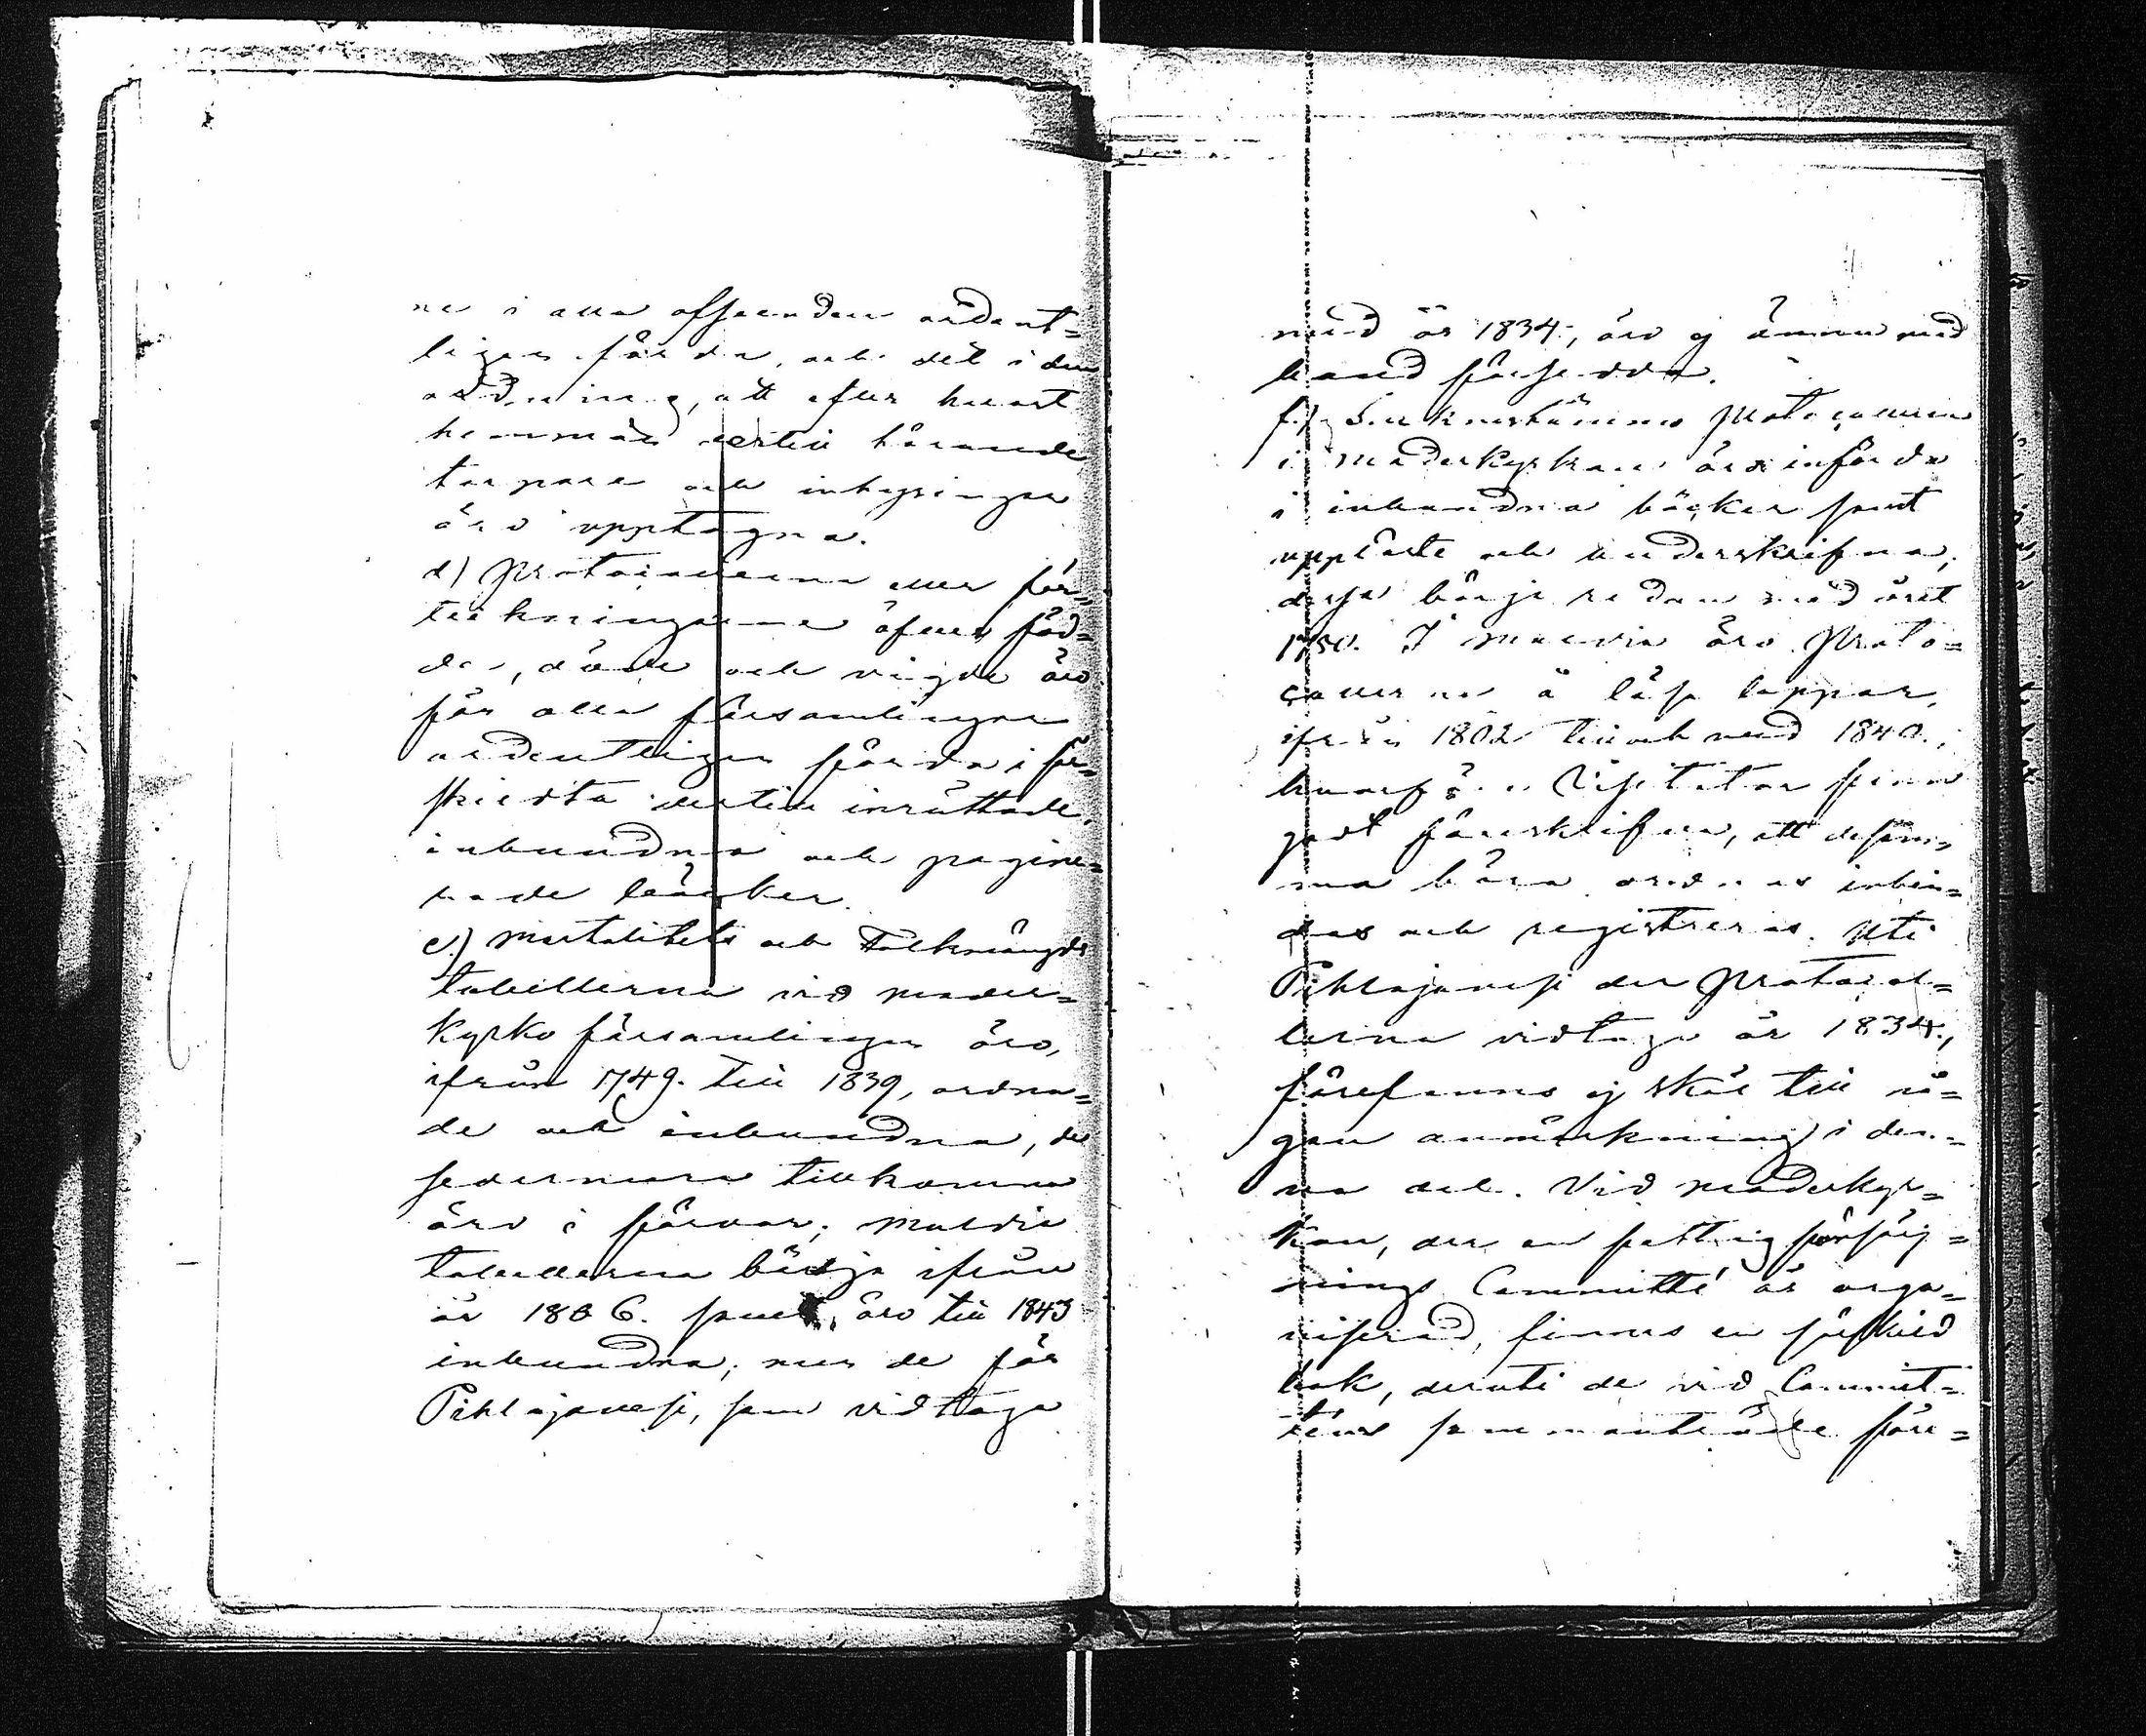 ne i alla afseenden ordent=
ligen förda, och det i den
ordning, att efter hvart
hemman dertill hörande
torpare och inhysingar
äro upptagna.
d) Protocollerne eller för=
teckningarne öfver föd=
de, döde och vigde äro
för alla församlingar
ordentligen förda i för=
skildta dertill inrättade,
inbundna och pagine=
rade böcker.
e) Mortalitets och Folkmängds
tabellerna vid moder=
kyrko församlingen äro,
ifrån 1749. till 1839, ordna=
de och inbundna, de
sedermera tillkomna
äro i förvar; Multia
tabellerna börja ifrån
år 1806. samt äro till 1843
inbundna; men de för
Pihlajavesi, som vidtaga
med år 1834, äro ej ännu med
band försedda.
f.) Sockenstämmo Protocollerna
i Moderkyrkan äro införda
i inbundna böcker samt
uppläste och underskrifna,
dessa börja redan med året
1750. I Multia äro Proto=
collerne å lösa lappar,
ifrån 1802 till och med 1840.,
hvarföre Visitator fann
godt föreskrifva, att desam=
ma böra ordnas inbin=
das och registreras. Uti
Pihlajavesi der Protocol=
lerna vidtaga år 1834.,
förefanns ej skäl till nå=
gon anmärkning i den=
na del. Vid moderkyr=
kan, der en fattig försörj=
nings Committé är orga=
niserad, finnes en särskild
bok, deruti de vid Commit=
téens sammanträde före=